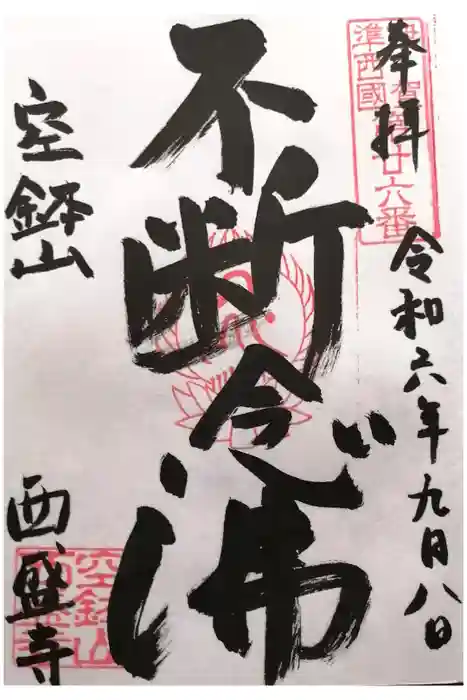 奉拝
令和六年九月八日
不断念佛
空鉢山
西盛寺
准西國
廿六番
空鉢山
西盛寺